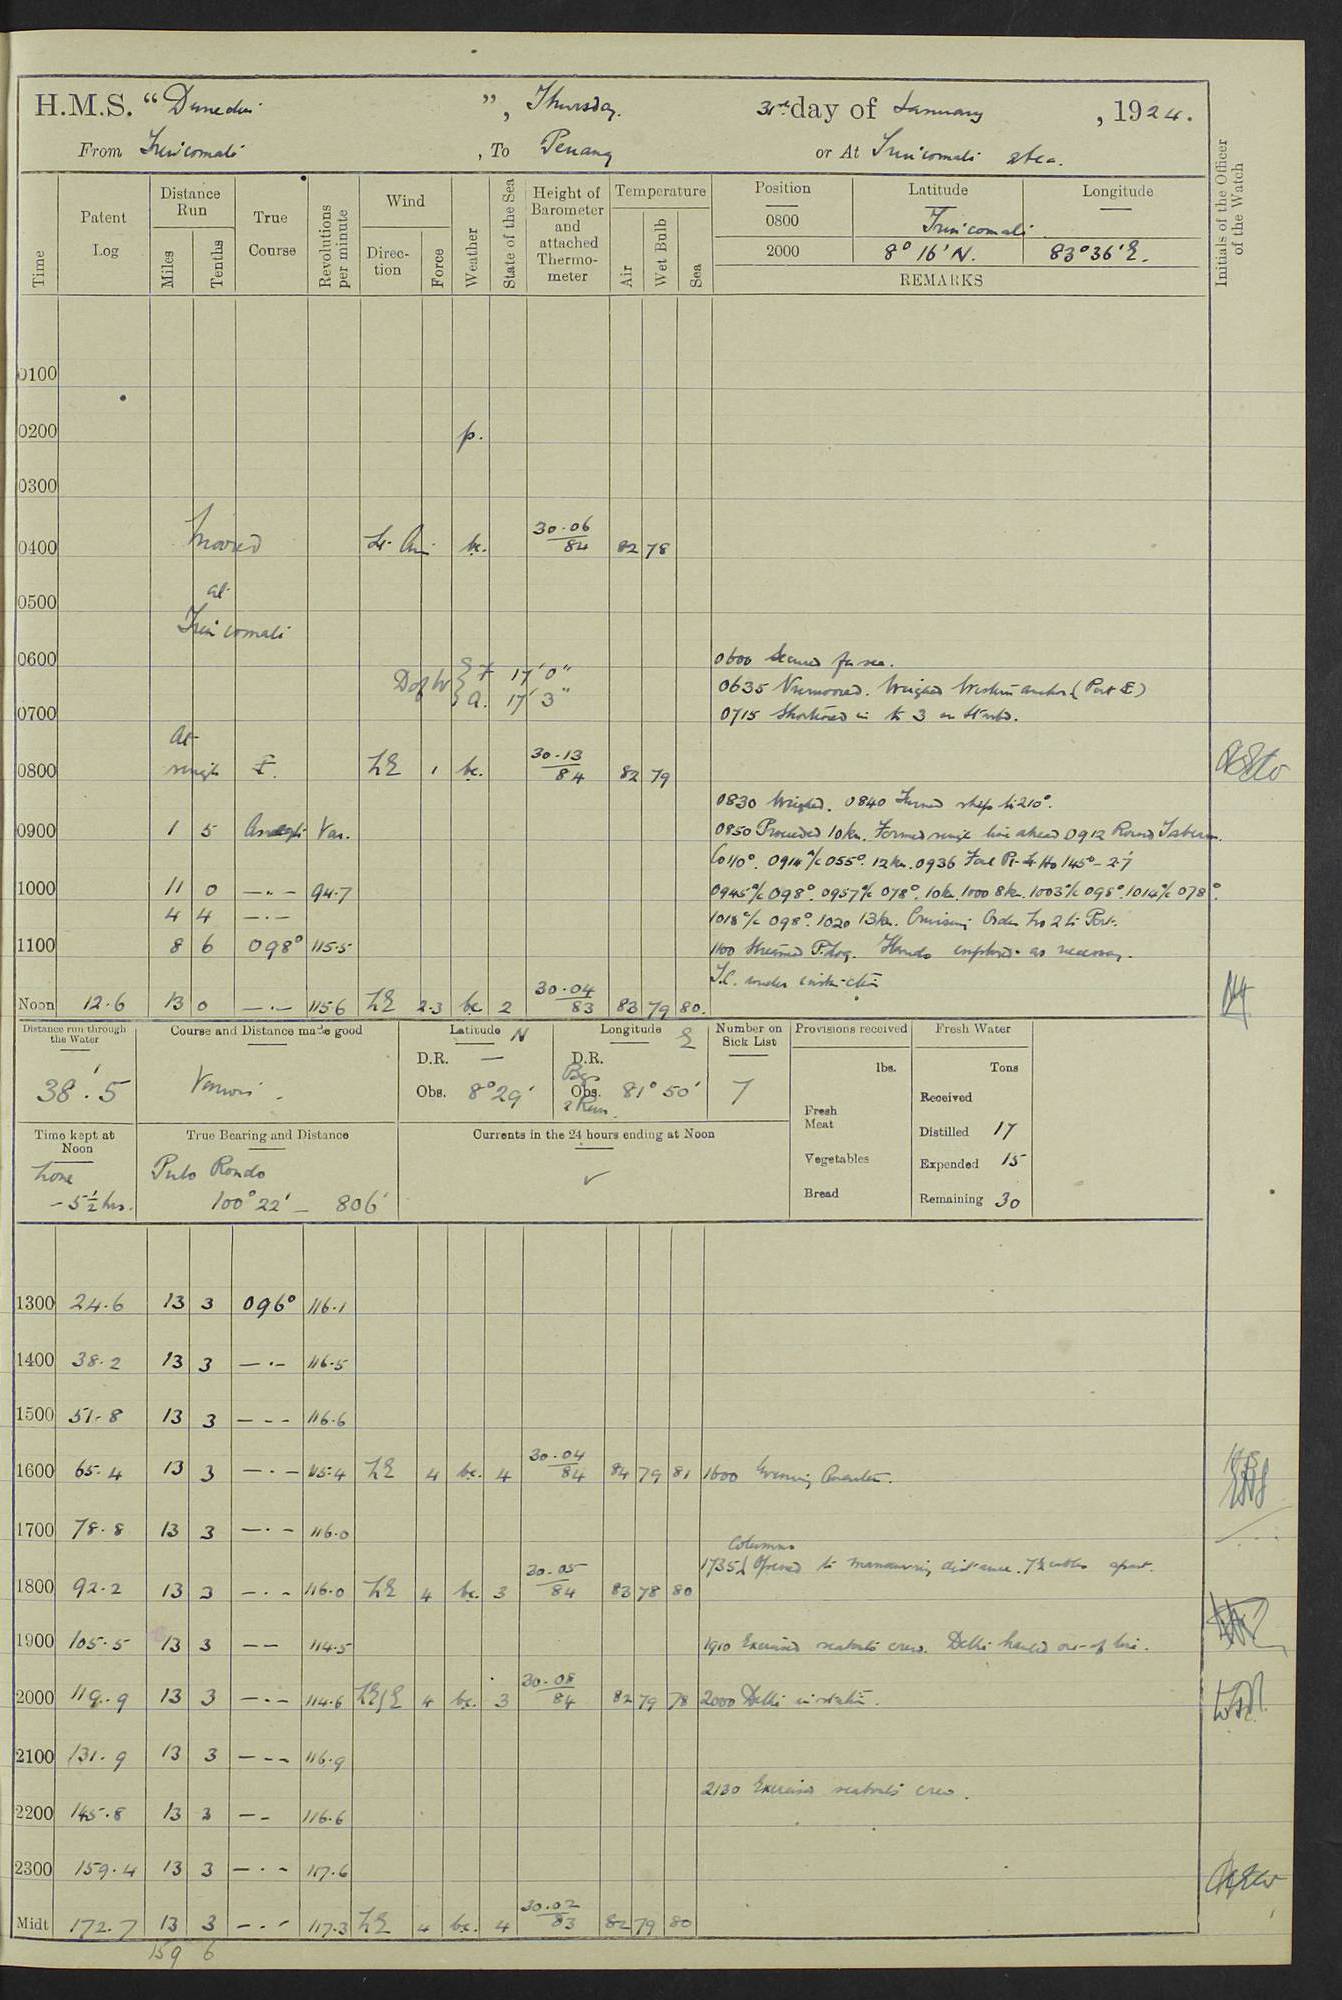 H.M.S. “ Dunedin ”, Thursday. 31st day of January, 1924.
From Trincomali, To Penang or At Trincomali & Sea.
Time Patent Log Distance Run Miles Tenths True Course Revolutions per minute Wind Direction Force Weather State of the Sea Height of Barometer and attached Thermometer Temperature Air Wet Bulb Sea Position Latitude Longitude Initials of the Officer of the Watch
0800 Trincomali
2000 8° 16' N. 83° 36' E.
REMARKS
0100
0200 p.
0300
0400 Moored Lt. Air bc. 30.06 84 82 78
0500 at
Trincomali
0600 0600 Secured for sea.
D of W { F 17' 0"
A. 17' 3"
0635 Unmoored. Weighed Western anchor (Port)
0700 0715 Shortened in to 3 on Starbd.
At
0800 single NE 1 bc. 30.13 84 82 79
0830 Weighed. 0840 Turned ship to 210°.
0900 1 5 Var. 0850 Proceeded 10 kn. Formed single line ahead 0912 Round
Co 110°. 0914 A/c 055°. 12 kn. 0936 Foul Pt. Lt Ho 145° - 2.7'
1000 11 0 —.— 94.7 0945 A/c 098°. 0957 A/c 078°. 10 kn. 1000 8 kn. 1003 A/c 098°. 1014 A/c 078°.
4 4 —.— 1018 A/c 098°. 1020 13 kn. Cruising Order No 2 to Port.
1100 8 6 098° 115.5 1100 Streamed P. Log. Hands employed as necessary.
T.C. under instruction
Noon 12.6 13 0 —.— 115.6 NE 2.3 bc 2 30.04 83 83 79 80.
Distance run through the Water Course and Distance made good Latitude N Longitude E Number on Sick List Provisions received Fresh Water
38'.5 Various. D.R. — D.R. lbs. Tons
Obs. 8° 29' Obs. 81° 50' 7
Bgs
Fresh Meat Received
Time kept at Noon True Bearing and Distance Currents in the 24 hours ending at Noon Distilled 17
Zone Pulo Rondo ✓ Vegetables Expended 15
- 5½ hrs. 100° 22' - 806' Bread Remaining 30
1300 24.6 13 3 096° 116.1
1400 38.2 13 3 —.— 116.5
1500 51.8 13 3 — - - 116.6
1600 65.4 13 3 —.— 115.4 NE 4 bc. 4 30.04 84 84 79 81 1600 Evening Quarters.
1700 78.8 13 3 —.— 116.0
Columns
1735 Opened to manœuvring distance. 7½ cables apart.
1800 92.2 13 3 —.— 116.0 NE 4 bc. 3 30.05 84 83 78 80
1900 105.5 13 3 —— 114.5 1910 Exercised seaboats crew. Delhi hauled out of line.
2000 119.9 13 3 —.— 114.6 NE/E 4 bc. 3 30.08 84 82 79 78 2000 Delhi in station.
2100 131.9 13 3 — - - 116.9
2130 Exercised seaboats crew.
2200 145.8 13 3 — - 116.6
2300 159.4 13 3 —.— 117.6
Midt 172.7 13 3 —.— 117.3 NE 4 bc. 4 30.02 83 82 79 80
159 6